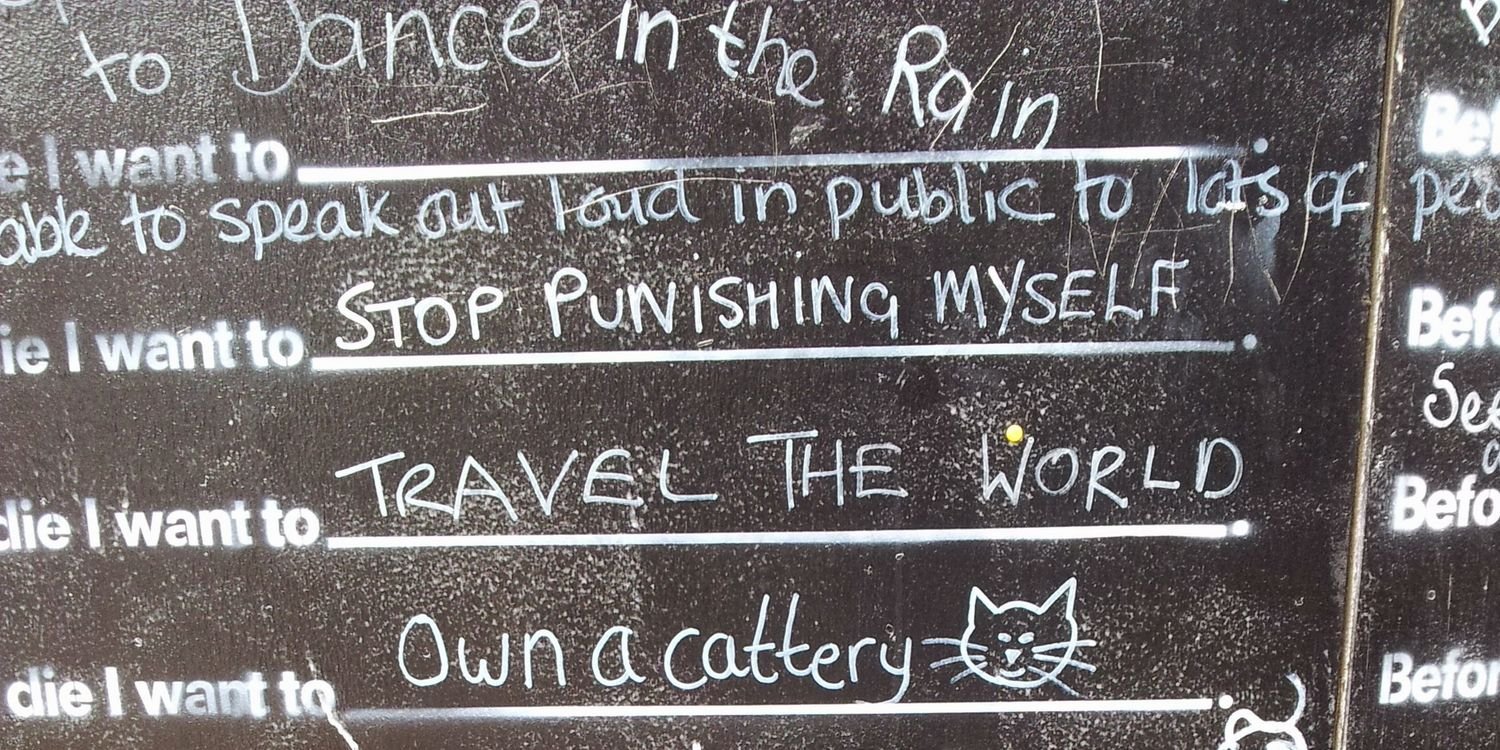 to Dance in the Rain
I want to
able to speak out loud in public to lots of
die I want to STOP PUNISHING MYSELF
die I want to TRAVEL THE WORLD
die I want to Own a cattery
See